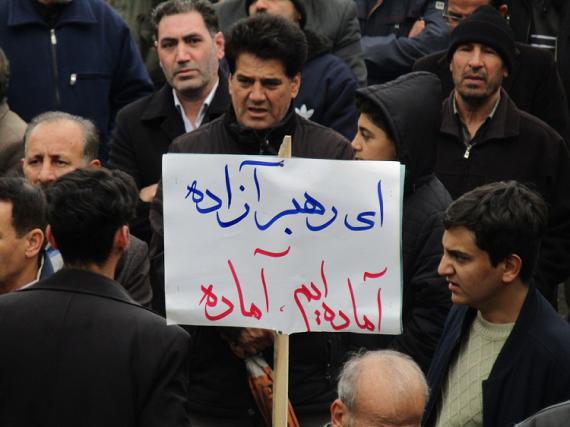 ای رهبر آزاده
آماده ایم، آماده